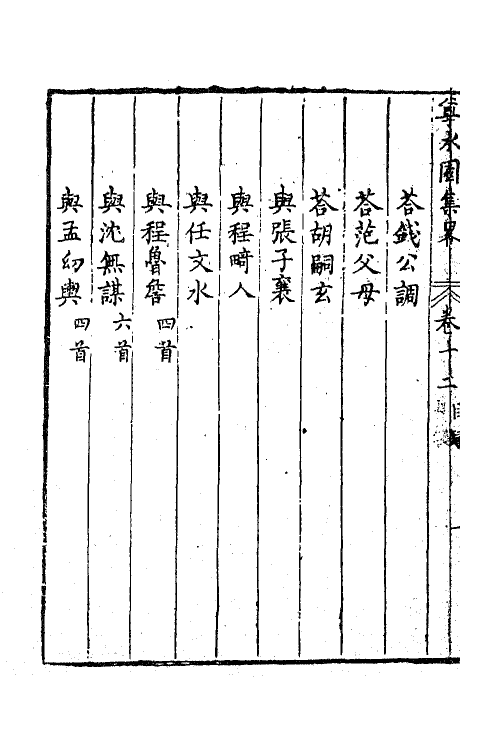 集畧 卷十二 目
荅錢公調
荅范父母
荅胡嗣玄
與張子襄
與程畸人
與任文水
與程魯詹 四首
與沈無謀 六首
與孟幻輿 四首